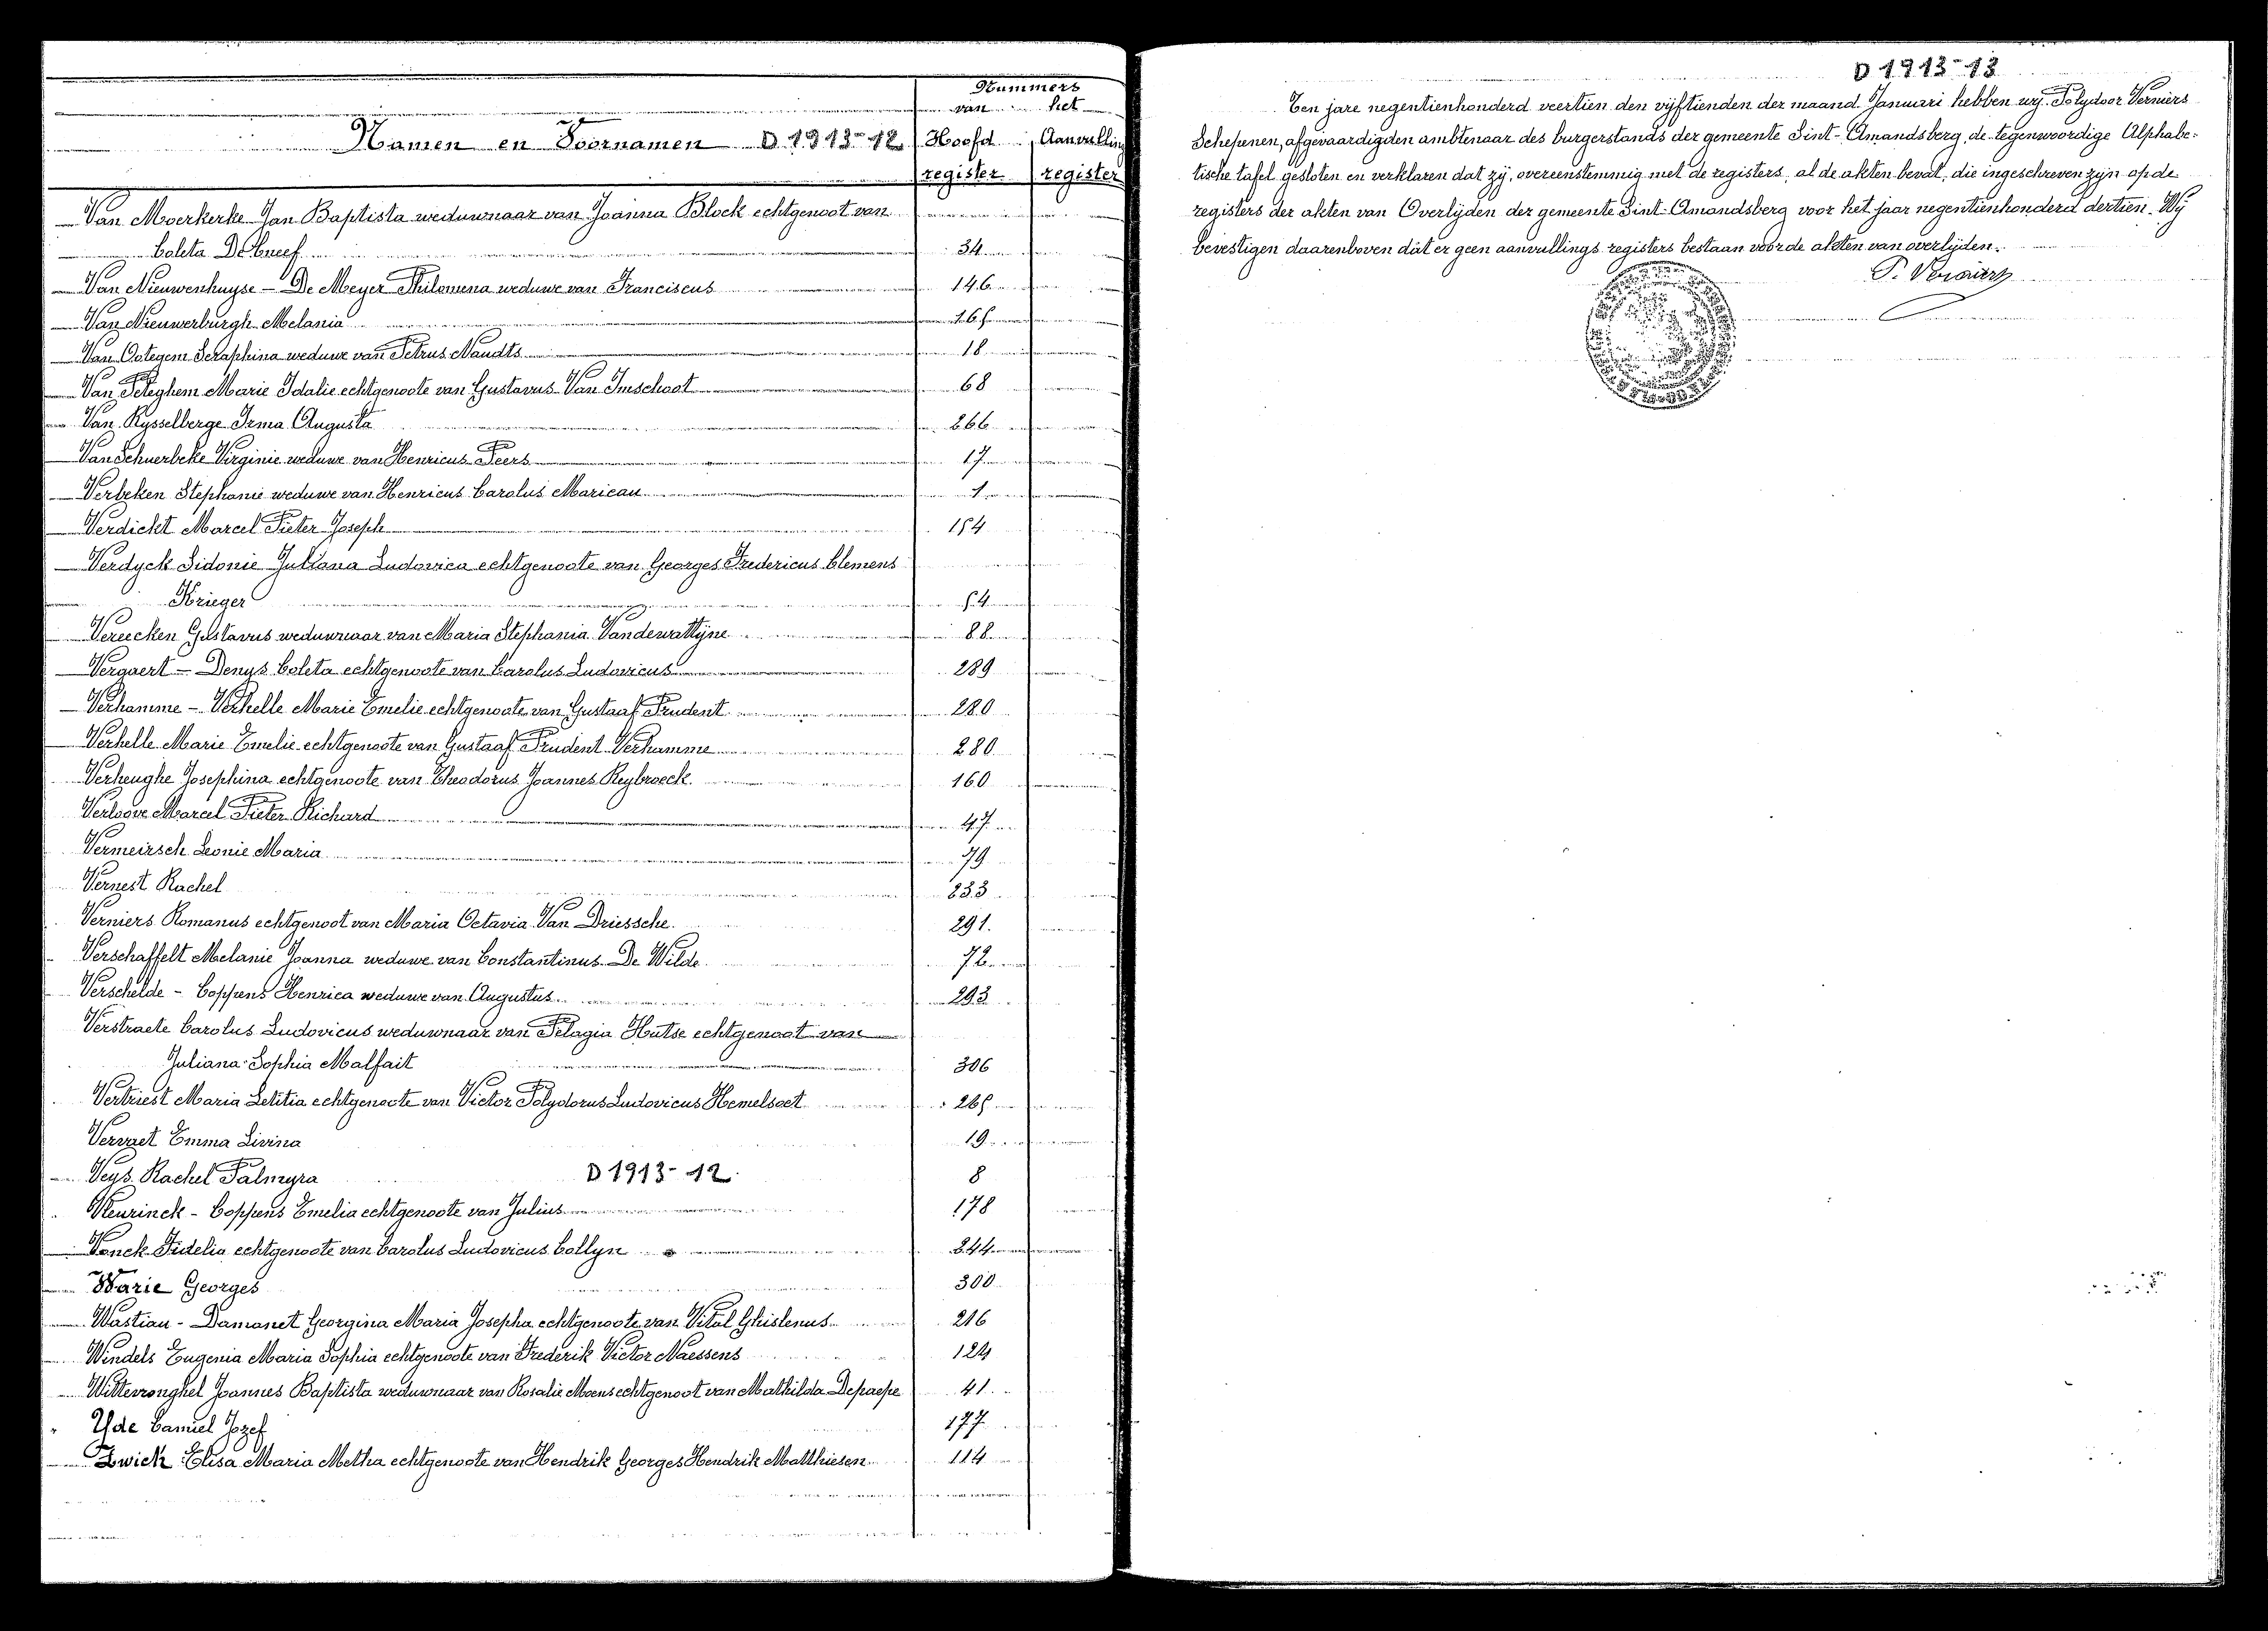 Nummers
van het
Namen en Voornamen D 1913-12 Hoofd Aanvulling
register register
Van Moerkerke Jan Baptista weduwnaar van Joanna Block echtgenoot van
Coleta De Cneef 34
Van Nieuwenhuyse - De Meyer Philomena weduwe van Franciscus 146
Van Nieuwerburgh Melania 165
Van Ootegem Seraphina weduwe van Petrus Naudts 18
Van Peteghem Marie Idalie echtgenoote van Gustavus Van Imschoot 68
Van Rysselberge Irma Augusta 266
Van Schuerbeke Virginie weduwe van Henricus Peers 17
Verbeken Stephanie weduwe van Henricus Carolus Maricau 1
Verdickt Marcel Pieter Joseph 154
Verdyck Sidonie Juliana Ludovica echtgenoote van Georges Fredericus Clemens
Krieger 54
Vereecken Gustavus weduwnaar van Maria Stephania Vandewattyne 88
Vergaert - Denys Coleta echtgenoote van Carolus Ludovicus 289
Verhamme - Verhelle Marie Emelie echtgenoote van Gustaaf Prudent 280
Verhelle Marie Emelie echtgenoote van Gustaaf Prudent Verhamme 280
Verheughe Josephina echtgenoote van Theodorus Joannes Reybroeck 160
Verloove Marcel Pieter Richard 47
Vermeirsch Leonie Maria 79
Vernest Rachel 233
Verniers Romanus echtgenoot van Maria Octavia Van Driessche 291.
Verschaffelt Melanie Joanna weduwe van Constantinus De Wilde 72
Verschelde - Coppens Henrica weduwe van Augustus 293
Verstraete Carolus Ludovicus weduwnaar van Pelagia Hutse echtgenoot van
Juliana Sophia Malfait 306
Vertriest Maria Letitia echtgenoote van Victor Polydorus Ludovicus Hemelsoet 265
Vervaet Emma Livina 19
Veys Rachel Palmyra D 1913-12. 8
Vleurinck - Coppens Emelia echtgenoote van Julius 178
Vonck Fidelia echtgenoote van Carolus Ludovicus Collyn 244
Warie Georges 300
Wastiau - Damanet Georgina Maria Josepha echtgenoote van Vital Ghislenus 216
Windels Eugenia Maria Sophia echtgenoote van Frederik Victor Naessens 124
Wittevronghel Joannes Baptista weduwnaar van Rosalie Moens echtgenoot van Mathilda Depaepe 41
Yde Camiel Jozef 177
Zwick Elisa Maria Metha echtgenoote van Hendrik Georges Hendrik Matthiesen 114
D 1913-13
Ten jare negentienhonderd veertien den vyftienden der maand Januari hebben wy Polydoor Verniers
Schepenen, afgevaardigden ambtenaar des burgerstands der gemeente Sint-Amandsberg, de tegenwoordige Alphabe-
tische tafel gesloten en verklaren dat zy, overeenstemmig met de registers, al de akten bevat, die ingeschreven zyn op de
registers der akten van Overlyden der gemeente Sint-Amandsberg voor het jaar negentienhonderd dertien. Wy
bevestigen daarenboven dat er geen aanvullings registers bestaan voor de akten van overlyden.
P. Verniers